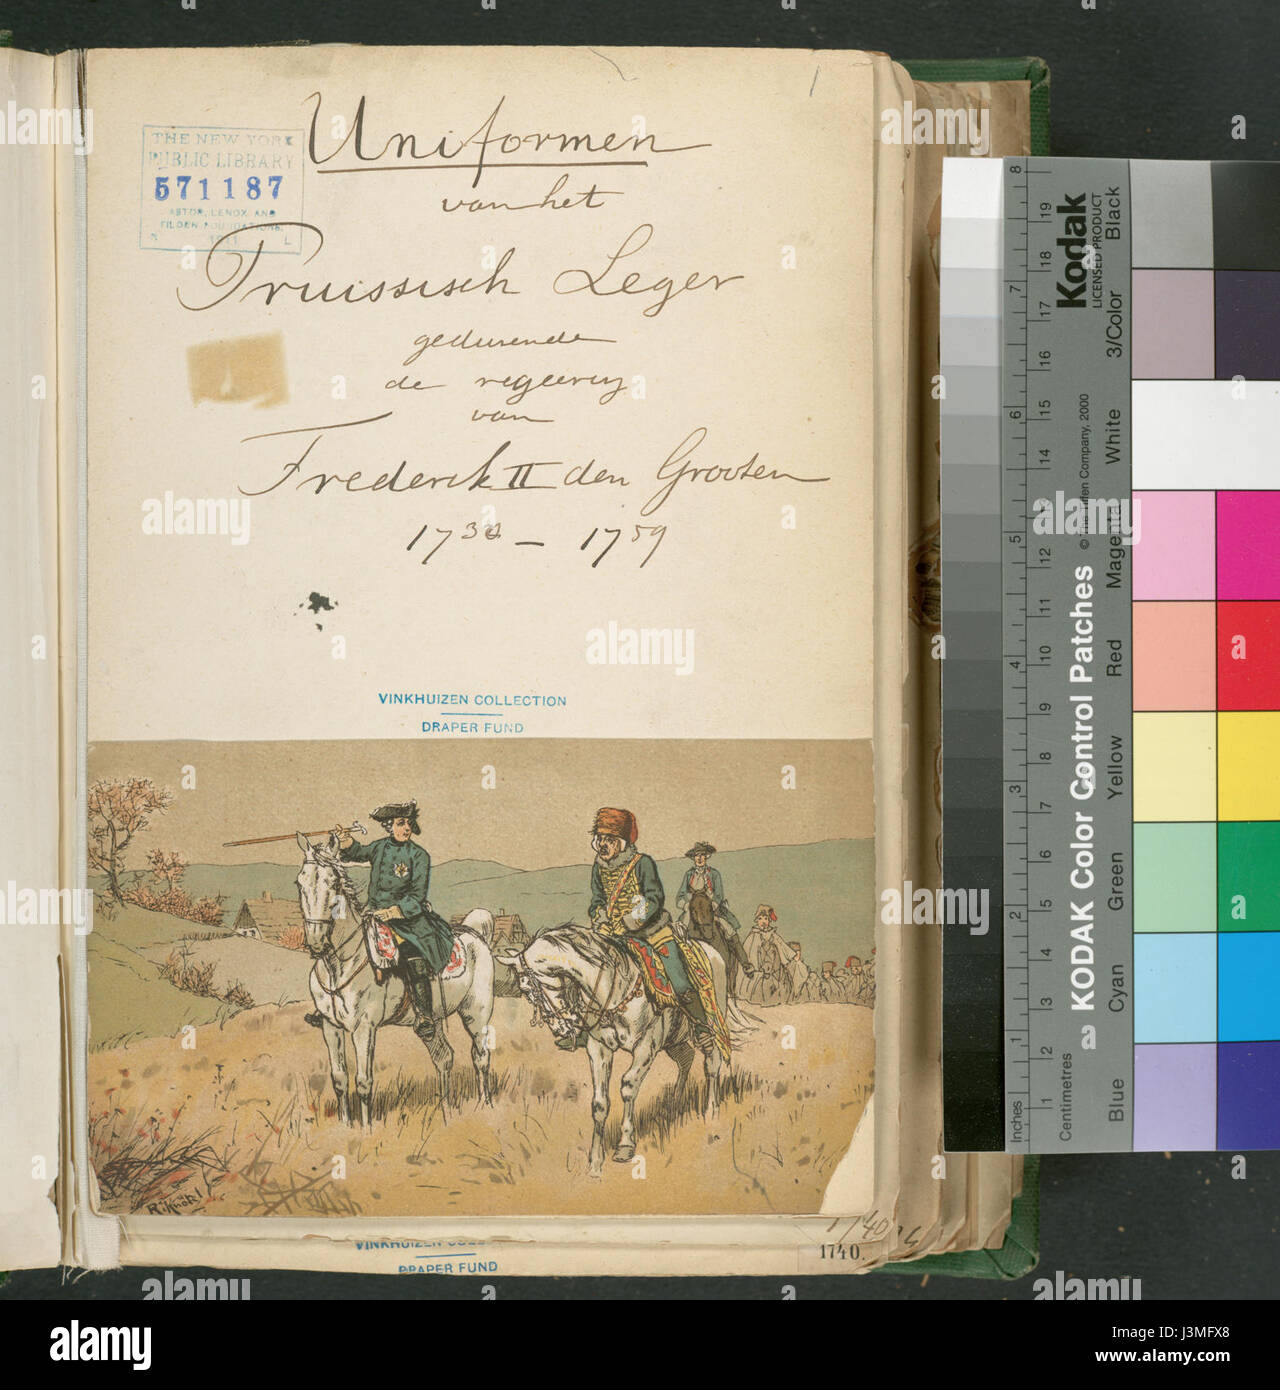 1
Uniformen
van het
Pruissisch Leger
gedurende
de regeering
van
Frederik II den Grooten
1730 - 1759
THE NEW YORK
PUBLIC LIBRARY
571187
ASTOR, LENOX AND
TILDEN FOUNDATIONS.
VINKHUIZEN COLLECTION
DRAPER FUND
R. Knötel
VINKHUIZEN
DRAPER FUND
1740
1740.
Kodak
LICENSED PRODUCT
KODAK Color Control Patches
© The Tiffen Company, 2000
Black
3/Color
White
Magenta
Red
Yellow
Green
Cyan
Blue
Inches
1 2 3 4 5 6 7 8
Centimetres
1 2 3 4 5 6 7 8 9 10 11 12 13 14 15 16 17 18 19
alamy
alamy stock photo
J3MFX8
www.alamy.com